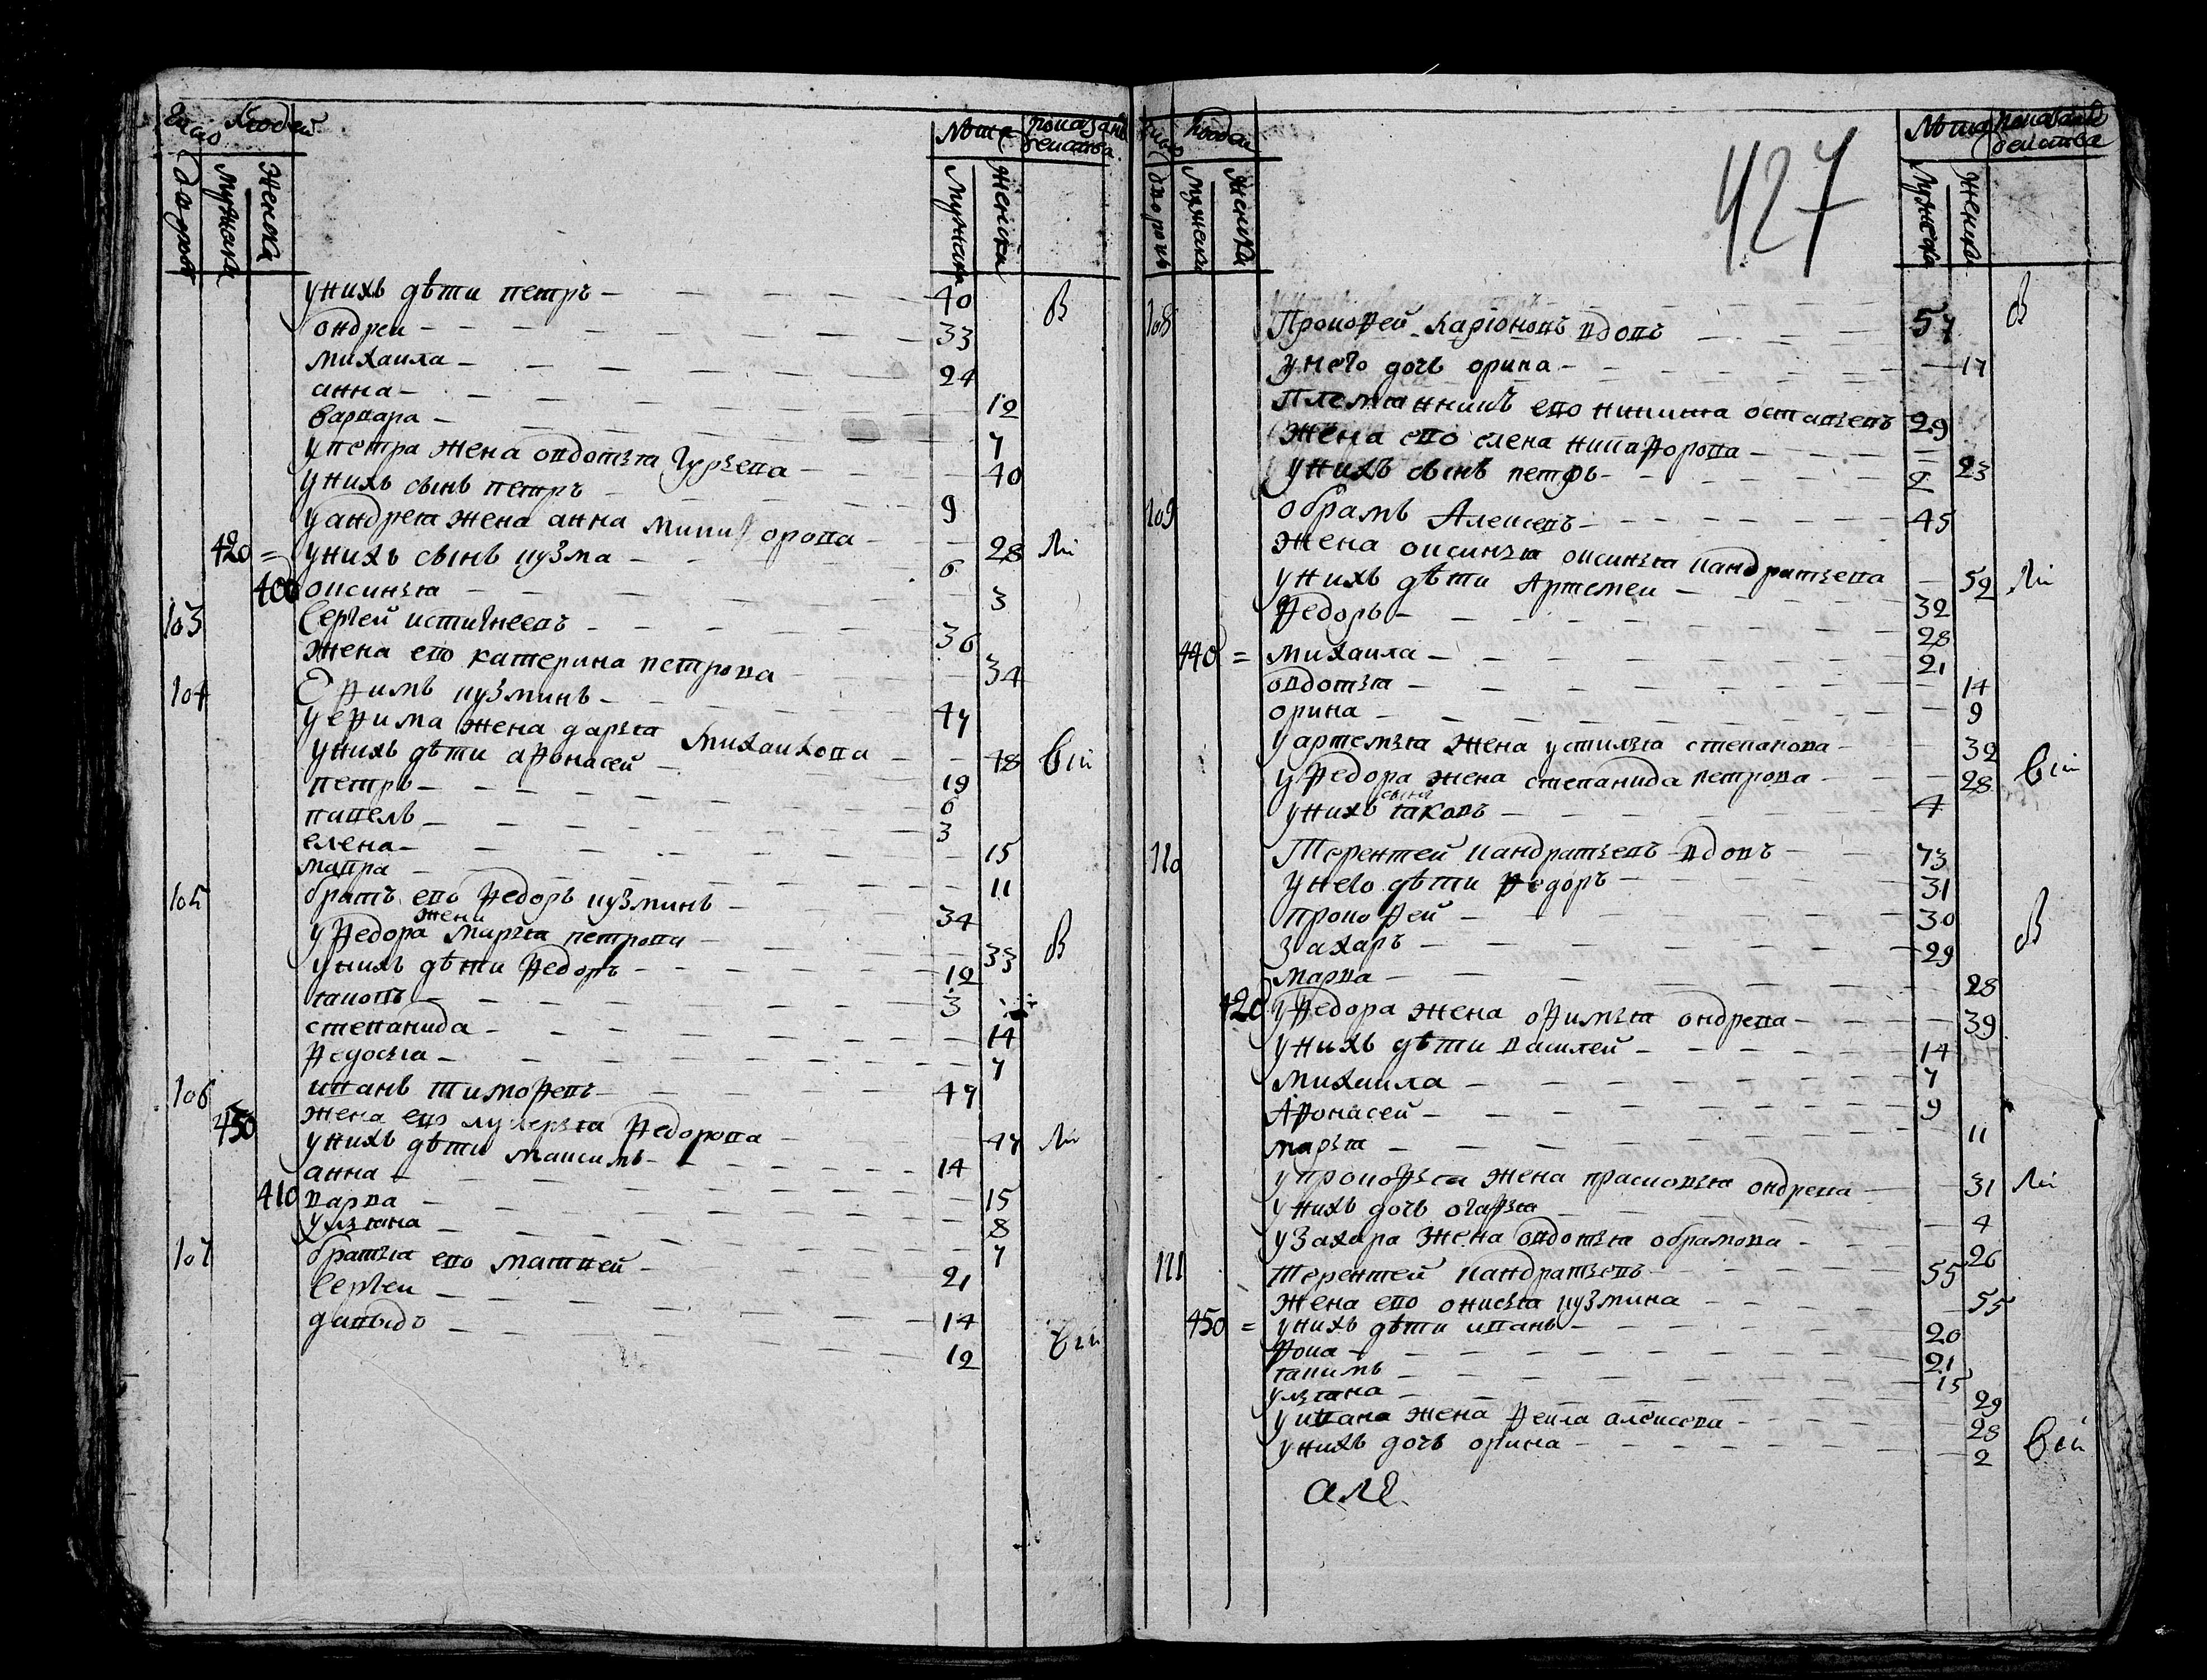 Число Людей
дворовъ
Мужска
Женска
Лѣта
Мужска
Женска
показание
бытства
унихъ дѣти петръ — 40 в
ондреи — 33
михаила — 24
анна — 12
варвара — 7
упетра жена овдотья гурьева — 40
унихъ сынъ петръ — 9
уандрея жена анна никифорова — 28 ли
420 = унихъ сынъ кузма — 6
400 оксинья — 3
103 Сергей истигнеевъ — 36
жена ево катерина петрова — 34
104 Ефимъ кузминъ — 47
уефима жена дарья михаилова — 48 бы
унихъ дѣти афонасей — 19
петръ — 6
павелъ — 3
елена — 15
мавра — 11
105 братъ ево федоръ кузминъ — 34
уфедора жена марья петрова — 33 в
унихъ дѣти федоръ — 12
яковъ — 3
степанида — 14
федосья — 7
106 иванъ тимофеевъ — 47
430 жена ево лукерья федорова — 47 ли
унихъ дѣти максимъ — 14
анна — 15
410 варва — 8
ульяна — 7
107 братья ево матвей — 21
Сергеи — 14
давыдо — 12 бы
427
Число Людей
дворовъ
Мужска
Женска
Лѣта
Мужска
Женска
показание
бытства
108 Прокофей Ларіоновъ вдовъ — 57 в
унего дочь орина — 17
Племянникъ ево никита остафьевъ 29
Жена ево елена никафорова — 23
унихъ сынъ петръ — 2
109 обрамъ Алексеевъ — 45
жена оксинья оксинья кандратьева — 52 ли
унихъ дѣти Артемеи — 32
федоръ — 28
440 = михаила — 21
овдотья — 14
орина — 9
уартемья жена устинья степанова — 32
уфедора жена степанида петрова — 28 бы
унихъ сынъ яковъ — 4
110 Терентей кандратьевъ вдовъ — 73
унего дѣти федоръ — 31
прокофей — 30
захаръ — 29 в
марва — 28
420 уфедора жена офимья ондрева — 39
унихъ дѣти василей — 14
михаила — 7
Афонасей — 9
марья — 11
упрокофья жена прасковья ондрева — 31 ли
унихъ дочь огафья — 4
узахара жена овдотья обрамова — 26
111 терентей кандратьевъ — 55
жена ево онисья кузмина — 55
450 = унихъ дѣти иванъ — 20
фока — 21
якимъ — 15
ульяна — 29
уивана жена фекла алексева — 28
унихъ дочь орина — 2 бы
але